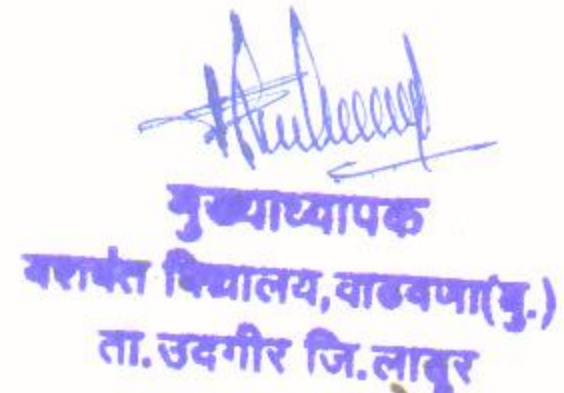 मुख्याध्यापक
यशवंत विद्यालय,वाढवणा(बु.)
ता.उदगीर जि.लातूर